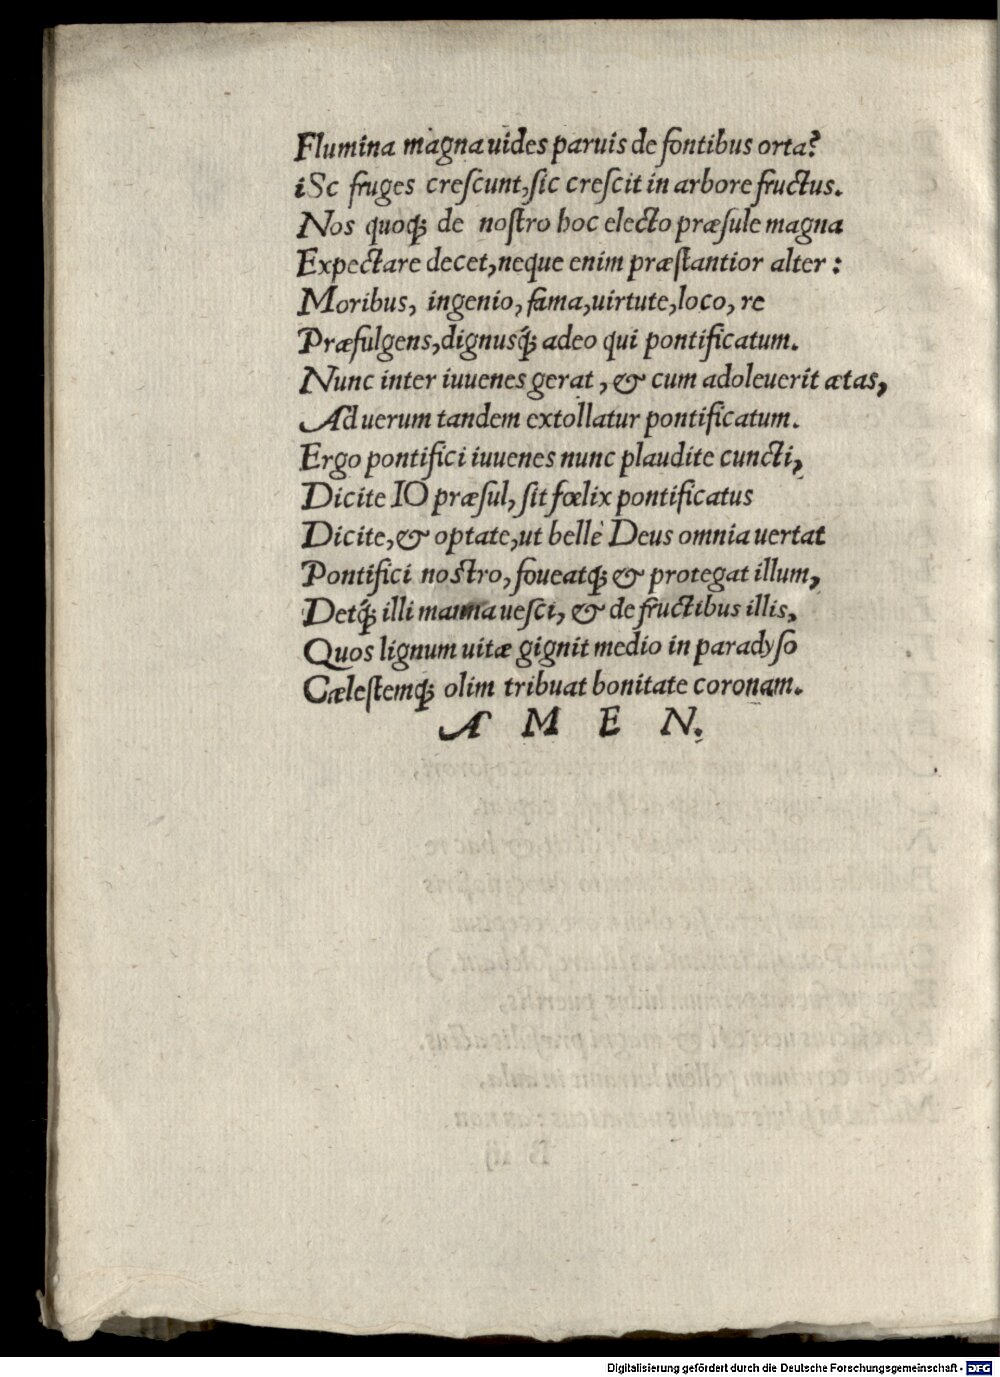 Flumina magna uides paruis de fontibus orta?
iSc fruges creſcunt, ſic creſcit in arbore fructus.
Nos quoqꝫ de noſtro hoc electo præſule magna
Expectare decet, neque enim præſtantior alter:
Moribus, ingenio, fama, uirtute, loco, re
Præfulgens, dignusqꝫ́ adeo qui pontificatum.
Nunc inter iuuenes gerat, & cum adoleuerit ætas,
Ad uerum tandem extollatur pontificatum.
Ergo pontifici iuuenes nunc plaudite cuncti,
Dicite IO præſul, ſit fœlix pontificatus
Dicite, & optate, ut bellè Deus omnia uertat
Pontifici noſtro, foueatqꝫ & protegat illum,
Detqꝫ́ illi manna ueſci, & de fructibus illis,
Quos lignum uitæ gignit medio in paradyſo
Cæleſtemqꝫ olim tribuat bonitate coronam.
A M E N.
Digitalisierung gefördert durch die Deutsche Forschungsgemeinschaft - DFG